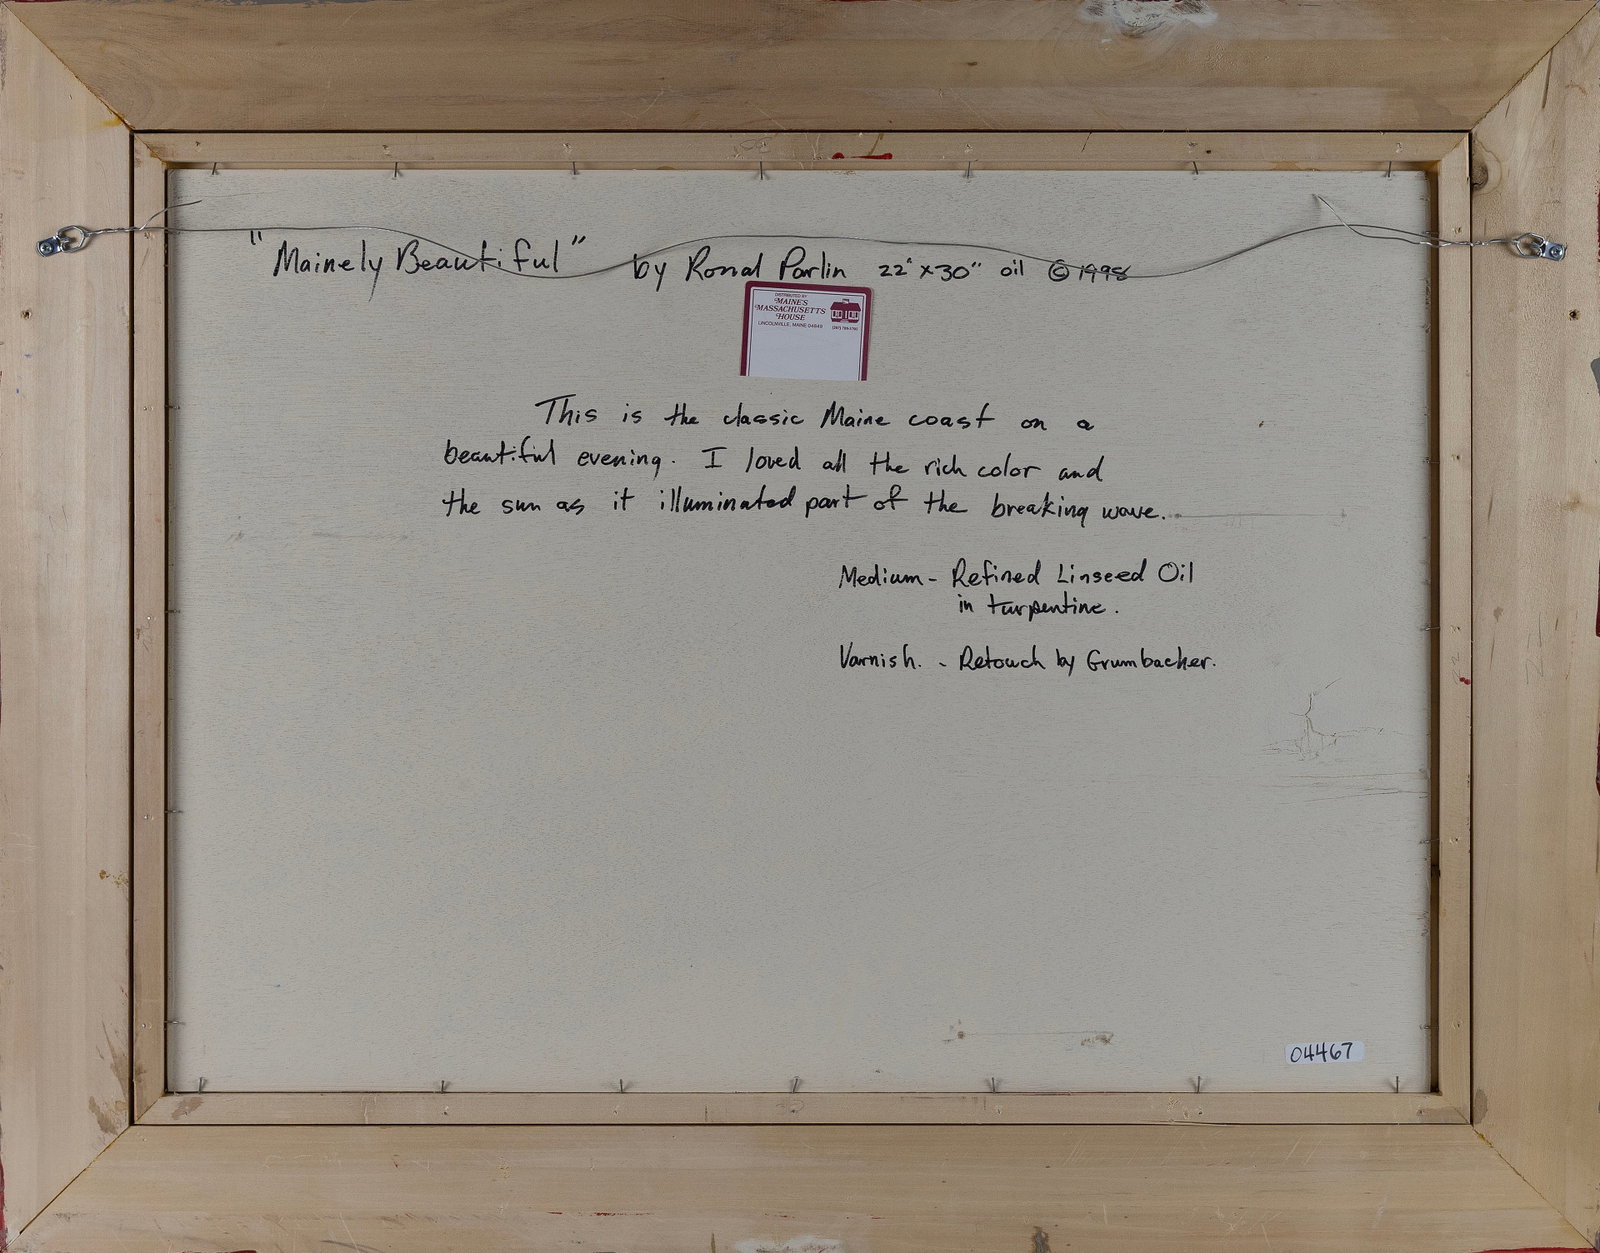 "Mainely Beautiful" by Ronal Parlin 22" x 30" oil © 1998
DISTRIBUTED BY
MAINE'S
MASSACHUSETTS
HOUSE
LINCOLNVILLE, MAINE 04849
This is the classic Maine coast on a
beautiful evening. I loved all the rich color and
the sun as it illuminated part of the breaking wave.
Medium - Refined Linseed Oil
in turpentine.
Varnish. - Retouch by Grumbacher.
04467